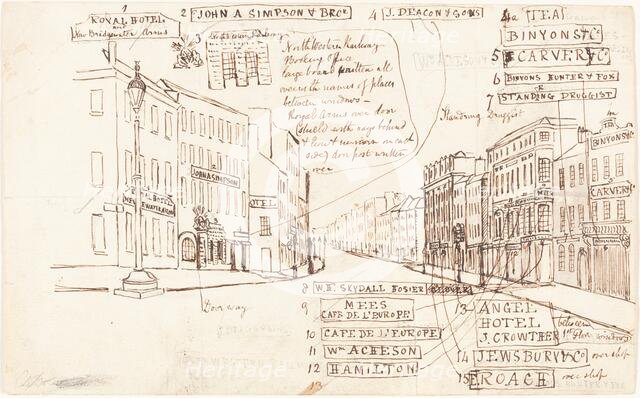 1
ROYAL HOTEL
and
New Bridgewater Arms
2 JOHN A SIMPSON & BROs
3
4 J. DEACON & SONS
4a TEA
BINYONS & Co
5 CARVER & Co
6 BINYONS HUNTER & FOX
or
7 STANDING DRUGGIST
Standing Druggist
North Western Railway
Booking office
large board written all
over with names of places
between windows —
Royal Arms over door
(Shield with rays behind
& Lion & unicorn on each
side) door post written
over
JOHN A SIMPSON
HOTEL
4a
BINYONS & Co
CARVER & Co
Door way
8 W. H. SKYDALL HOSIER GLOVER
9 MEES
CAFE DE L'EUROPE
10 CAFE DE L'EUROPE
11 Wm ACHESON
12 HAMILTON
13
13 ANGEL
HOTEL
J. CROWTHER
between
1st floor windows
14 JEWSBURY & Co over shop
15 ROACH over shop
Heritage